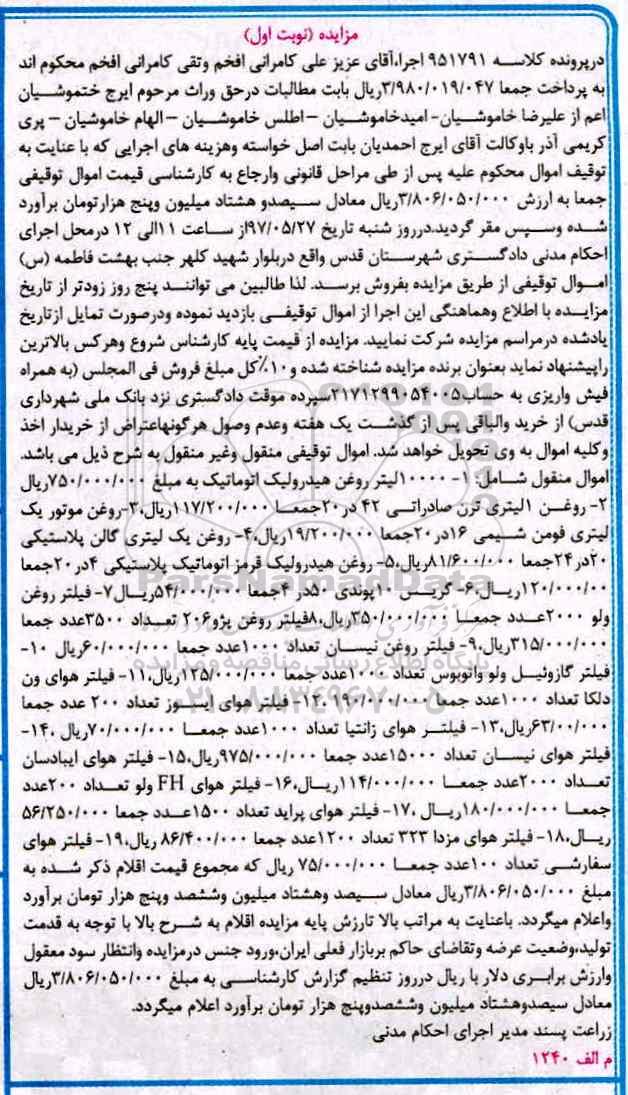 مزایده (نوبت اول)
درپرونده کلاسه ۹۵۱۷۹۱ اجرا،آقای عزیز علی کامرانی افخم وتقی کامرانی افخم محکوم اند
به پرداخت جمعا ۳/۹۸۰/۰۱۹/۰۴۷ریال بابت مطالبات درحق وراث مرحوم ایرج ختموشیان
اعم از علیرضا خاموشیان- امیدخاموشیان –اطلس خاموشیان –الهام خاموشیان – پری
کریمی آذر باوکالت آقای ایرج احمدیان بابت اصل خواسته وهزینه های اجرایی که با عنایت به
توقیف اموال محکوم علیه پس از طی مراحل قانونی وارجاع به کارشناسی قیمت اموال توقیفی
جمعا به ارزش ۳/۸۰۶/۰۵۰/۰۰۰ریال معادل سیصدو هشتاد میلیون وپنج هزارتومان برآورد
شده وسپس مقر گردید.درروز شنبه تاریخ ۹۷/۰۵/۲۷از ساعت ۱۱الی ۱۲ درمحل اجرای
احکام مدنی دادگستری شهرستان قدس واقع دربلوار شهید کلهر جنب بهشت فاطمه (س)
اموال توقیفی از طریق مزایده بفروش برسد. لذا طالبین می توانند پنج روز زودتر از تاریخ
مزایده با اطلاع وهماهنگی این اجرا از اموال توقیفی بازدید نموده ودرصورت تمایل ازتاریخ
یادشده درمراسم مزایده شرکت نمایید. مزایده از قیمت پایه کارشناس شروع وهرکس بالاترین
راپیشنهاد نماید بعنوان برنده مزایده شناخته شده و۱۰٪کل مبلغ فروش فی المجلس (به همراه
فیش واریزی به حساب۲۱۷۱۲۹۹۰۵۴۰۰۵سپرده موقت دادگستری نزد بانک ملی شهرداری
قدس) از خرید والباقی پس از گذشت یک هفته وعدم وصول هرگونهاعتراض از خریدار اخذ
وکلیه اموال به وی تحویل خواهد شد. اموال توقیفی منقول وغیر منقول به شرح ذیل می باشد.
اموال منقول شامل: ۱- ۱۰۰۰۰لیتر روغن هیدرولیک اتوماتیک به مبلغ ۷۵۰/۰۰۰/۰۰۰ریال
۲- روغن ۱لیتری ترن صادراتی ۴۲ در۲۰جمعا ۱۱۷/۲۰۰/۰۰۰ریال،۳-روغن موتور یک
لیتری فومن شیمی ۱۶در۲۰جمعا ۱۹/۲۰۰/۰۰۰ریال،۴- روغن یک لیتری گالن پلاستیکی
۲۰در۲۴جمعا ۸۱/۶۰۰/۰۰۰ریال،۵- روغن هیدرولیک قرمز اتوماتیک پلاستیکی ۴در۲۰جمعا
۱۲۰/۰۰۰/۰۰ریال،۶- گریس ۱۰پوندی ۵۰در ۴جمعا ۵۴/۰۰۰/۰۰۰ریال۷- فیلتر روغن
ولو ۲۰۰۰عدد جمعا ۳۵۰/۰۰۰/۰۰۰ریال،۸فیلتر روغن پژو۲۰۶ تعداد ۳۵۰۰عدد جمعا
۳۱۵/۰۰۰/۰۰۰ریال،۹- فیلتر روغن نیسان تعداد ۱۰۰۰عدد جمعا ۶۰/۰۰۰/۰۰۰ریال ۱۰-
فیلتر گازوئیل ولو واتوبوس تعداد ۱۰۰۰عدد جمعا ۱۳۵/۰۰۰/۰۰۰ریال،۱۱- فیلتر هوای ون
دلکا تعداد ۱۰۰۰عدد جمعا ۱۹۰/۰۰۰/۰۰۰،۱۲- فیلتر هوای ایسوز تعداد ۲۰۰ عدد جمعا
۶۳/۰۰/۰۰۰ریال،۱۳- فیلتر هوای زانتیا تعداد ۱۰۰۰عدد جمعا ۷۰/۰۰۰/۰۰۰ریال ،۱۴-
فیلتر هوای نیسان تعداد ۱۵۰۰۰عدد جمعا ۹۷۵/۰۰۰/۰۰۰ریال،۱۵- فیلتر هوای ایبادسان
تعداد ۲۰۰۰عدد جمعا ۱۱۴/۰۰۰/۰۰۰ریال،۱۶- فیلتر هوای FH ولو تعداد ۲۰۰عدد
جمعا ۱۸۰/۰۰۰/۰۰۰ریال ،۱۷- فیلتر هوای پراید تعداد ۱۵۰۰عدد جمعا ۵۶/۲۵۰/۰۰۰
ریال،۱۸- فیلتر هوای مزدا ۳۲۳ تعداد ۱۲۰۰عدد جمعا ۸۶/۴۰۰/۰۰۰ ریال،۱۹- فیلتر هوای
سفارشی تعداد ۱۰۰عدد جمعا ۷۵/۰۰۰/۰۰۰ ریال که مجموع قیمت اقلام ذکر شده به
مبلغ ۳/۸۰۶/۰۵۰/۰۰۰ریال معادل سیصد وهشتاد میلیون وششصد وپنج هزار تومان برآورد
واعلام میگردد. باعنایت به مراتب بالا تارزش پایه مزایده اقلام به شرح بالا با توجه به قدمت
تولید،وضعیت عرضه وتقاضای حاکم بربازار فعلی ایران،ورود جنس درمزایده وانتظار سود معقول
وارزش برابری دلار با ریال درروز تنظیم گزارش کارشناسی به مبلغ ۳/۸۰۶/۰۵۰/۰۰۰ریال
معادل سیصدوهشتاد میلیون وششصدوپنج هزار تومان برآورد اعلام میگردد.
زراعت پسند مدیر اجرای احکام مدنی
م الف ۱۲۴۰
ParsNamadData
پایگاه اطلاع رسانی مناقصه و مزایده
۰۲۱-۸۸۳۴۹۶۷۰-۵